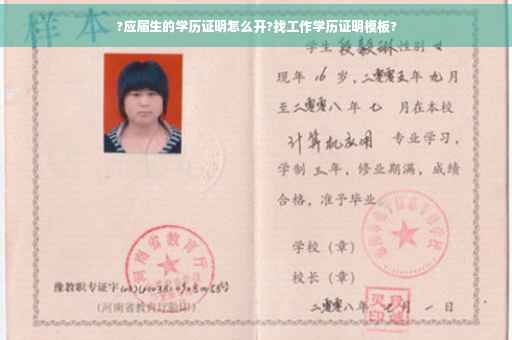 ?应届生的学历证明怎么开?找工作学历证明模板?
样本
学生段毅琳性别女
现年16岁,二零零五年九月
至二零零八年七月在本校
计算机应用 专业学习,
学制三年,修业期满,成绩
合格,准予毕业
学校(章)
校长(章)
二零零八年七月一日
河南省教育厅
豫教职专证字
(河南省教育厅验印)